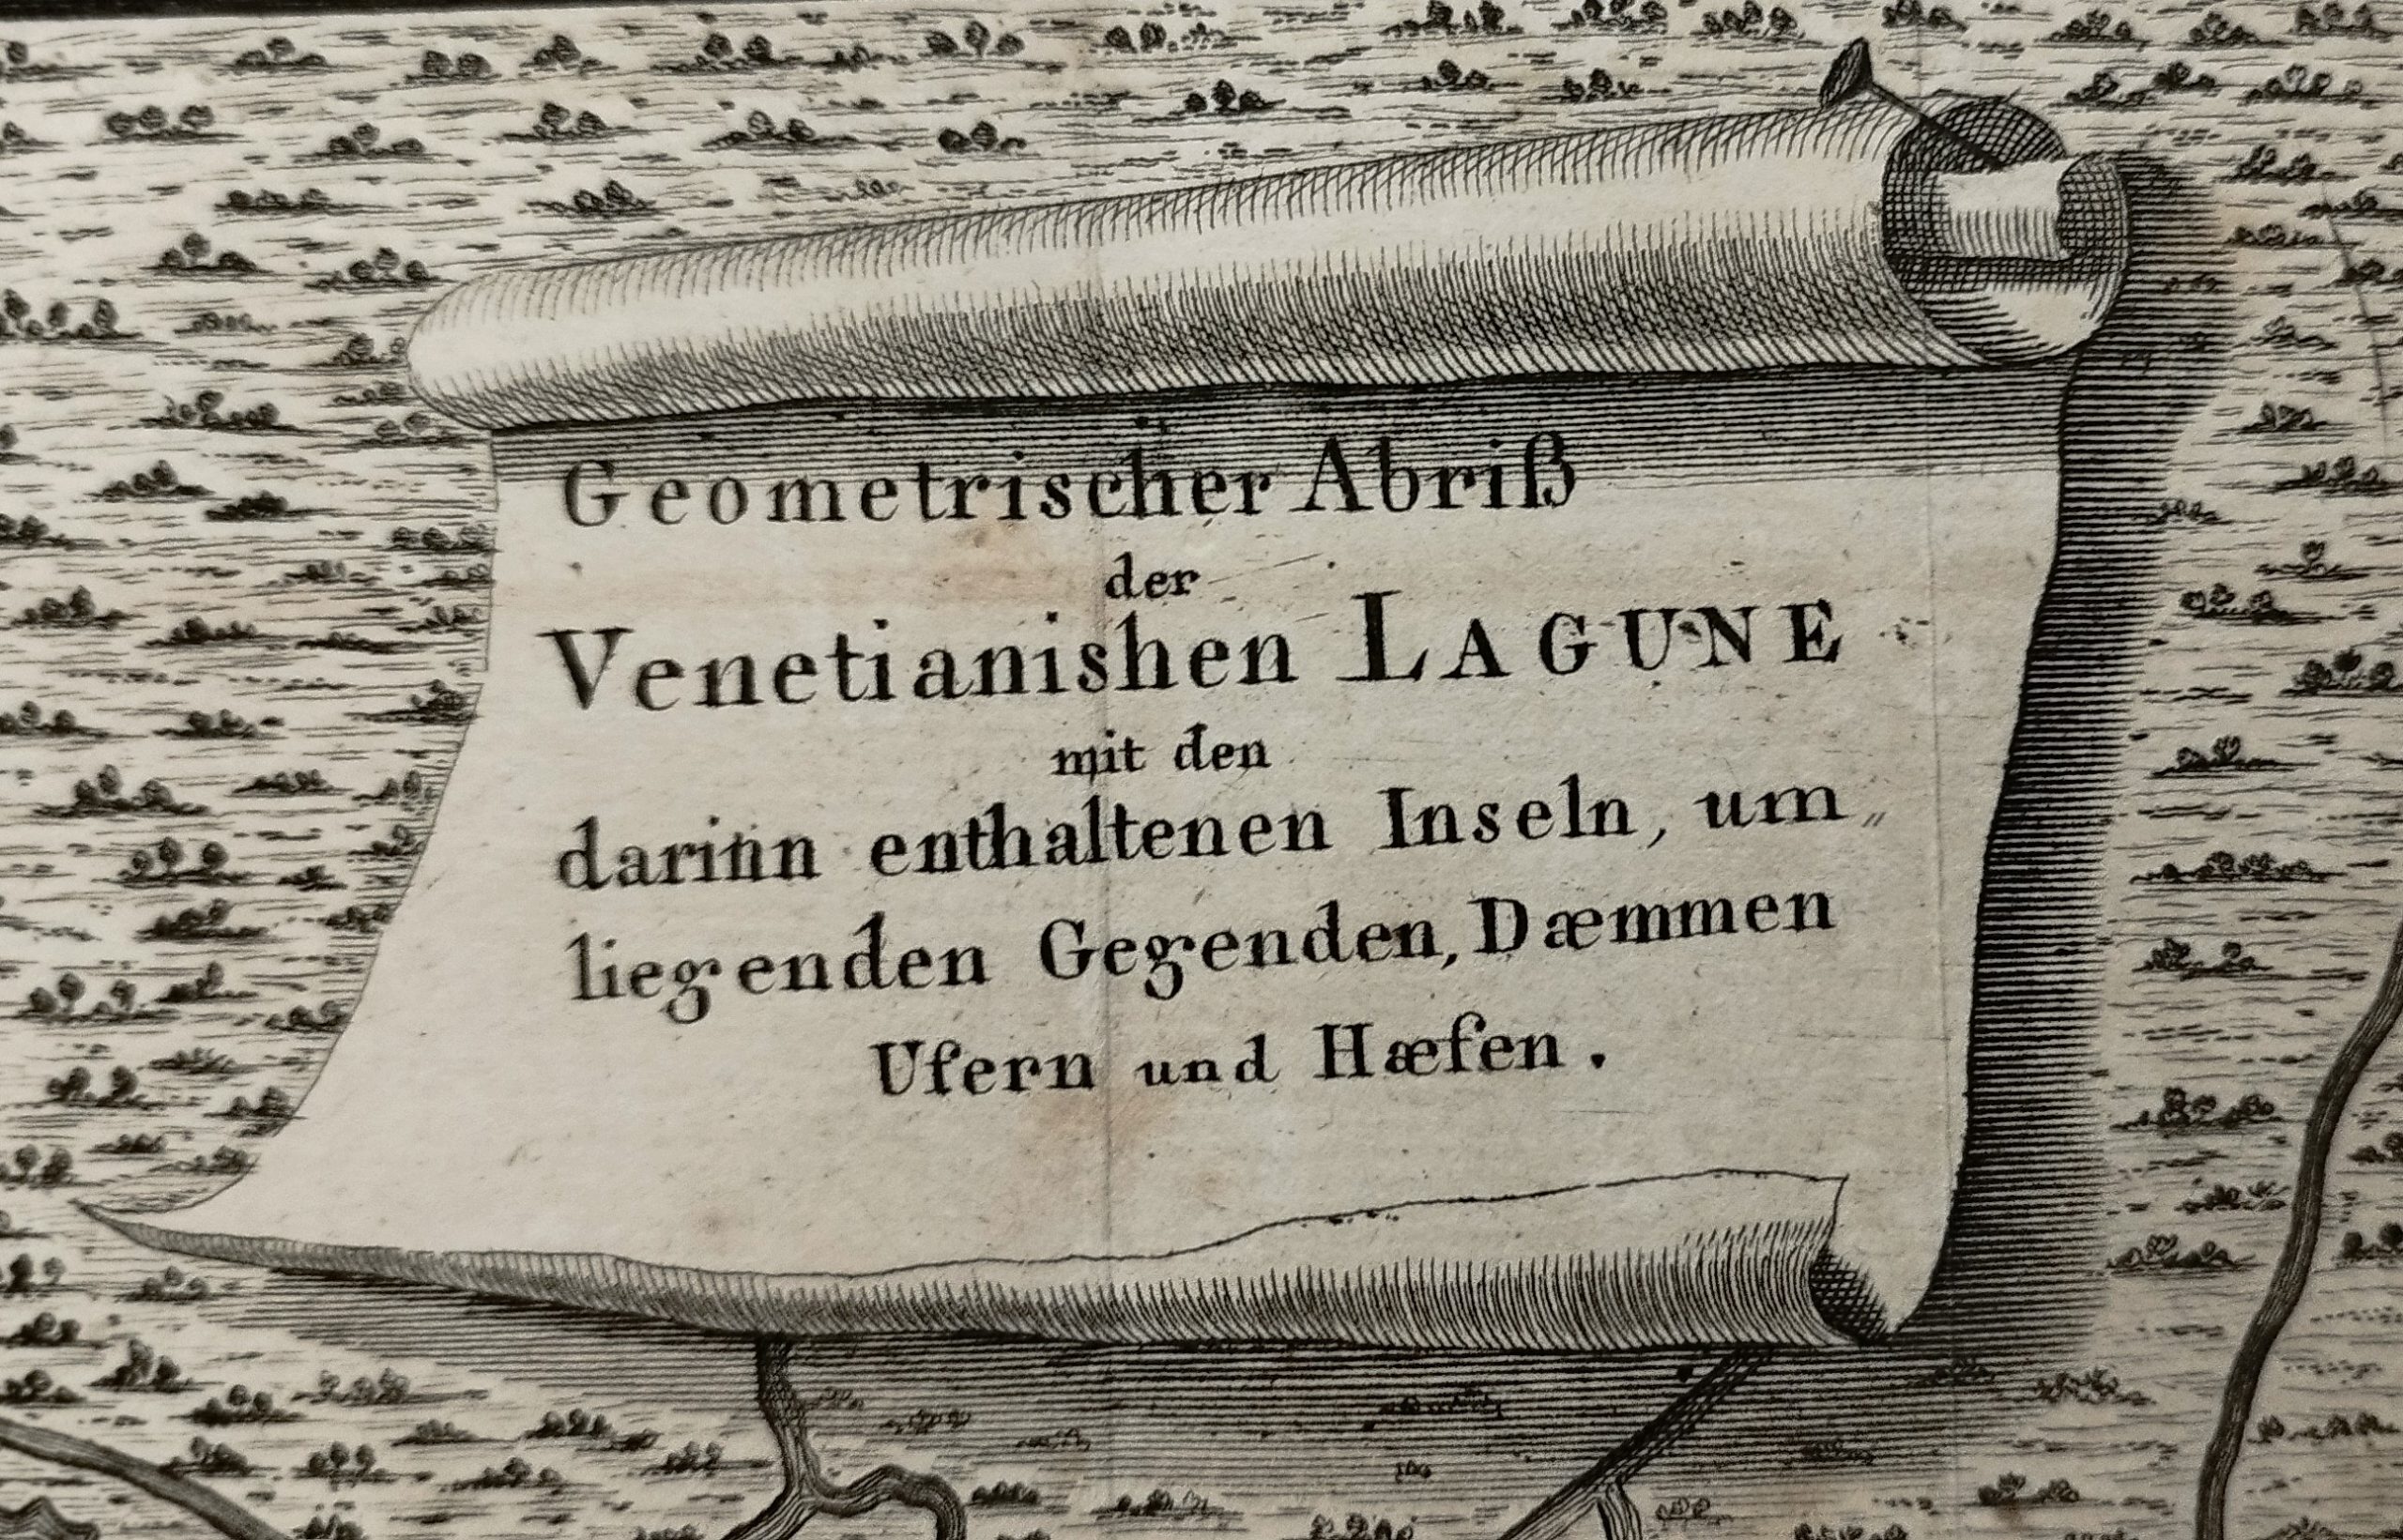 Geometrischer Abriß
der
Venetianishen LAGUNE
mit den
darinn enthaltenen Inseln, um„
liegenden Gegenden, Dæmmen
Ufern und Hæfen.